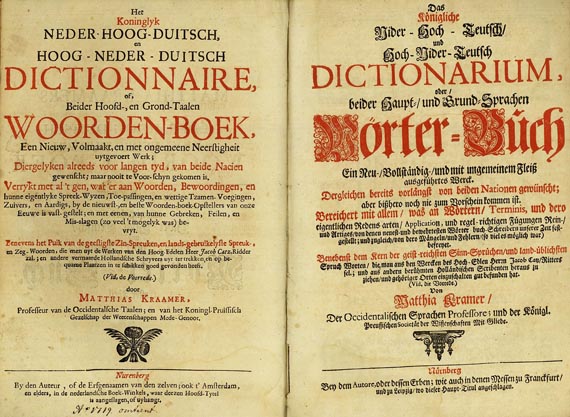 Het
Koninglyk
NEDER-HOOG-DUITSCH,
en
HOOG-NEDER-DUITSCH
DICTIONNAIRE,
of,
Beider Hoofd-, en Grond-Taalen
WOORDEN-BOEK,
Een Nieuw, Volmaakt, en met ongemeene Neerstigheit
uytgevoert Werk;
Diergelyken alreeds voor langen tyd, van beide Nacien
gewenscht; maar nooit te Voor-schyn gekomen is,
Verrykt met al 't gen, wat'er aan Woorden, Bewoordingen, en
hunne eigentlyke Spreek-Wyzen, Toe-passingen, en wettige Tzamen-Voegingen,
Zuivers, en Aardigs, by de nieuwst-, en beste Woorden-boek-Opstellers van onze
Eeuwe is vast gestelt; en met eenen, van hunne Gebreken, Feilen, en
Mis-slagen (zo veel 't mogelyk was) be-
vryt.
Benevens het Puik van de geestigste Zin-Spreuken, en lands-gebruikelyste Spreuk-
en Zeg-Woorden, die men uyt de Werken van den Hoog-Edelen Heer Jacob Cats, Ridder
zal; en andere vermaarde Hollandsche Schryvers uyt te trekken, en op be-
quaame Plaatzen in te schikken goed gevonden heeft.
(Vid. de Voorrede.)
door
MATTHIAS KRAAMER,
Professeur van de Occidentalsche Taalen; en van het Koningl-Pruissisch
Gezelschap der Weetenschappen Mede-Genoot.
Nurenberg
By den Auteur, of de Erfgenaamen van den zelven; ook t' Amsterdam,
en elders, in de nederlandsche Boek-Winkels, waar dezen Hoofd-Tytel
is aangeslagen, of uyhangt.
Das
Königliche
Nider-Hoch-Teutsch/
und
Hoch-Nider-Teutsch
DICTIONARIUM,
oder/
beider Haupt-/und Grund-Sprachen
Wörter-Buch
Ein Neu-/Vollständig-/und mit ungemeinem Fleiß
ausgeführtes Werck.
Dergleichen bereits vorlängst von beiden Nationen gewünscht;
aber bißhero noch nie zum Vorschein kommen ist.
Bereichert mit allem/ was an Wörtern/ Terminis, und dero
eigentlichen Redens-arten/ Application, und regel-richtigen Fügungen Rein-/
und Artiges von denen neuest- und bewehrtesten Wörter-buch-Schreibern unserer Zeit fest-
gestellt; und zugleich/ von dero Mängeln/ und Fehlern/ (so viel es möglich war)
befreyet.
Benebenst dem Kern der geist-reichsten Sinn-Sprüchen/ und land-üblichsten
Spruch Worten/ die man aus den Wercken des Hoch-Edlen Herrn Jacob Cats/ Ritters
sel.; und aus andern berühmten Holländischen Scribenten heraus zu
ziehen/ und gehöriger Orten einzuschalten gut befunden hat.
(Vid. die Vorrede.)
Von
Matthia Kramer/
Der Occidentalischen Sprachen Professore; und der Königl.
Preussischen Societät der Wissenschaften Mit Gliede.
Nürnberg
Bey dem Autore, oder dessen Erben; wie auch in denen Messen zu Franckfurt/
und zu Leipzig/ wo dieser Haupt-Titul angeschlagen.